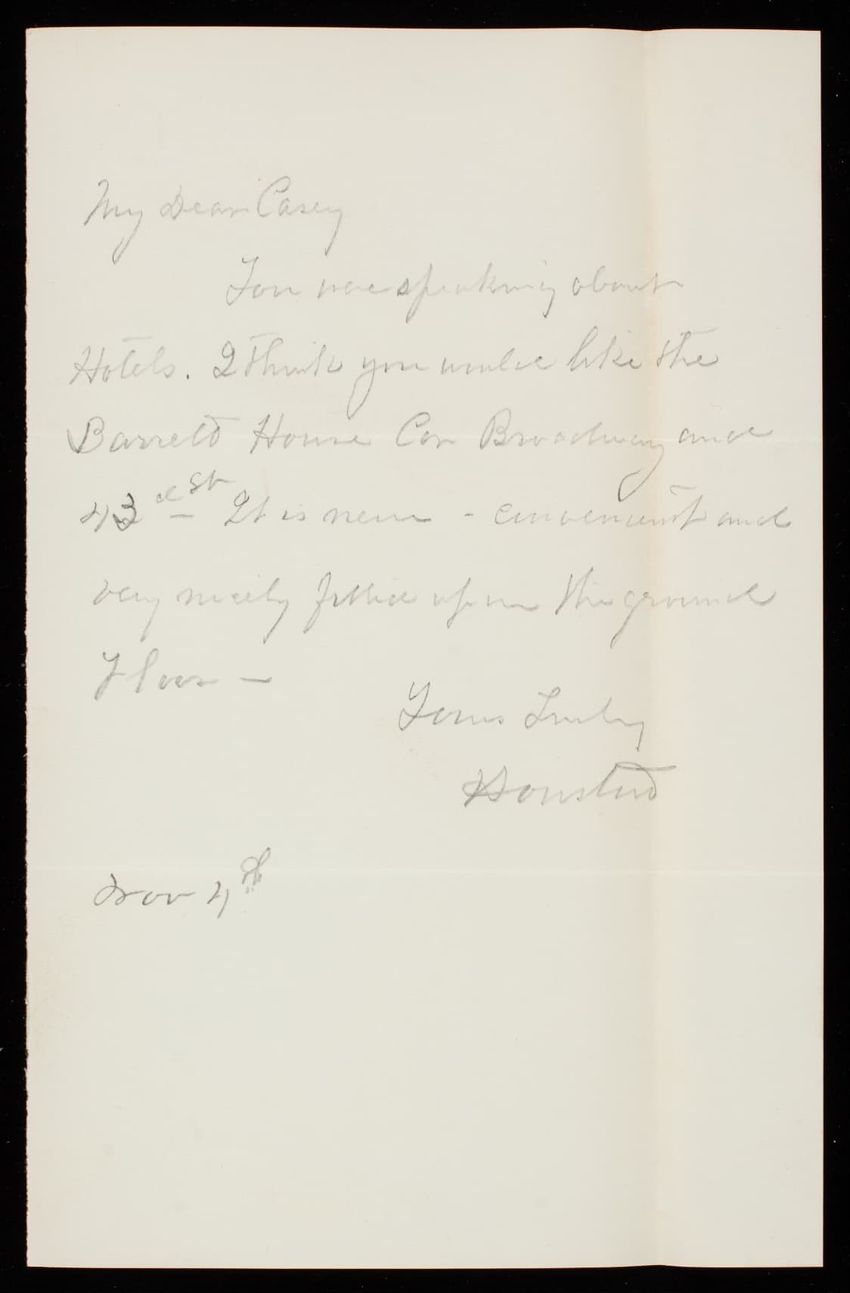 My Dear Casey
You were speaking about
Hotels. I think you would like the
Barrett House Cor Broadway and
43d St It is new - convenient and
very nicely fitted up on the ground
Floor —
Yours Truly
Nov 4th